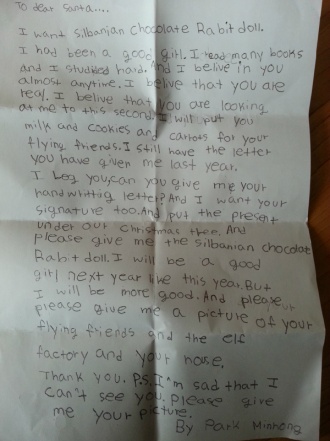 To dear Santa.....
I want silbanian chocolate Rabit doll.
I had been a good girl. I read many books
and I studied hard. And I belive in you
almost anytime. I belive that you are
real. I belive that you are looking
at me to this second. I will put you
milk and cookies and carrots for your
flying friends. I still have the letter
you have given me last year.
I beg you, can you give me your
handwritting letter? And I want your
signature too. And put the present
under our christmas tree. And
please give me the silbanian chocolate
Rabit doll. I will be a good
girl next year like this year. But
I will be more good. And please
please give me a picture of your
flying friends and the elf
factory and your
Thank you. P.S. I'm sad that I
can't see you. please give
me your picture.
By Park Minhong